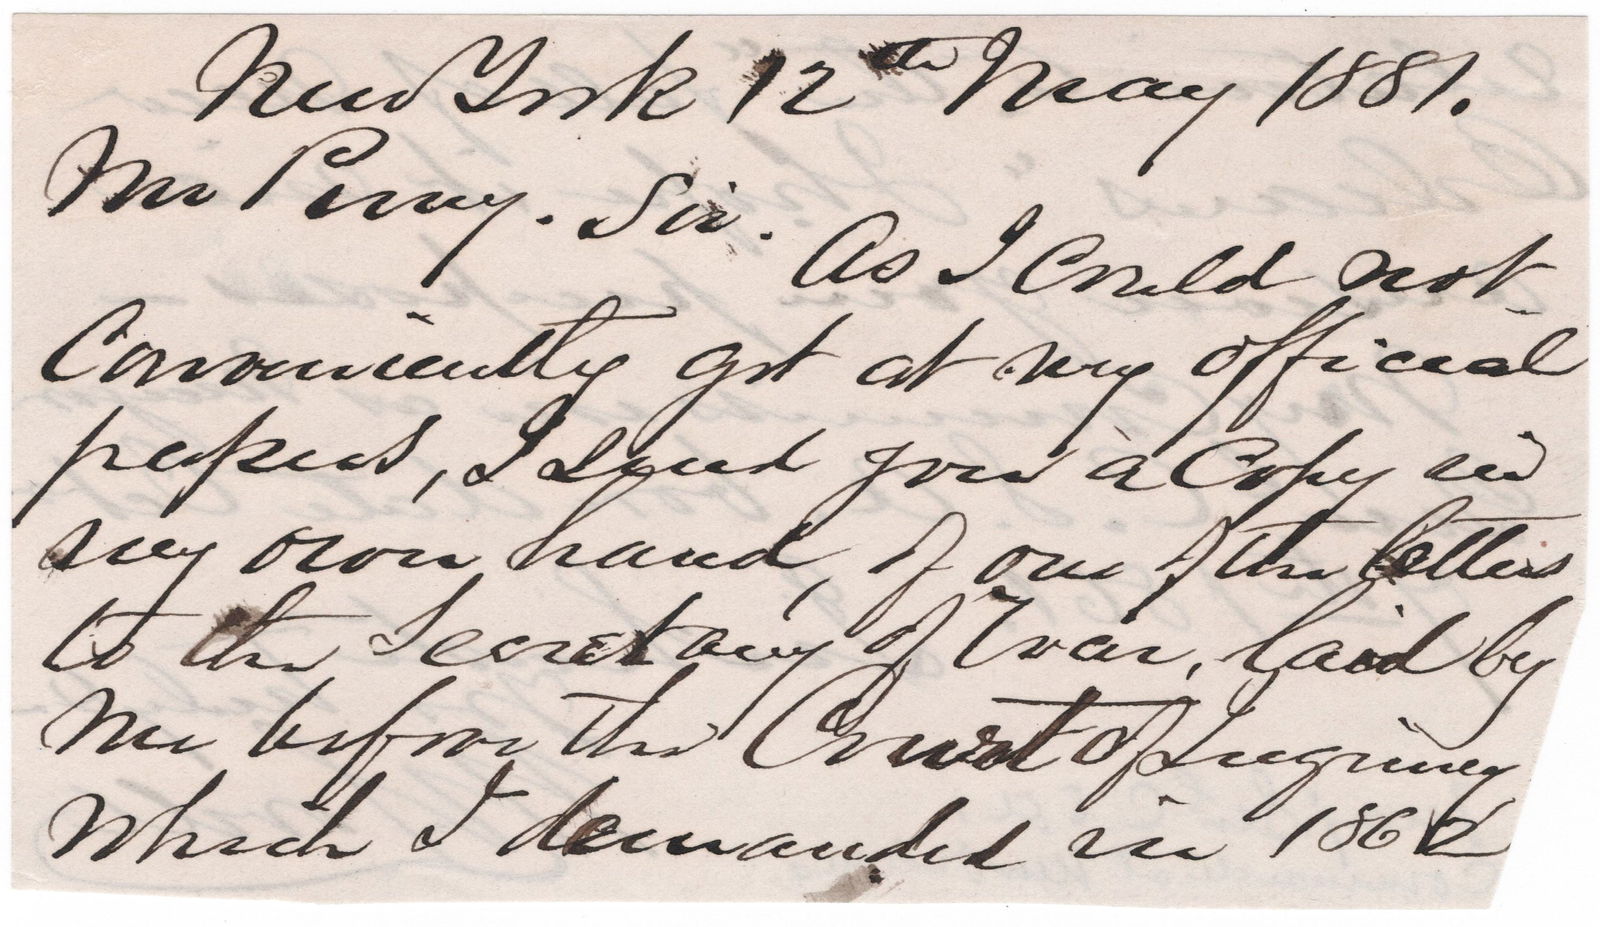 New York 12th May 1881.
Mr Perry. Sir.
As I Could not
Conveniently get at my official
papers, I send you a Copy in
my own hand, of one of the letters
to the Secretary of War, laid by
me before the Court of Inquiry
which I demanded in 1862